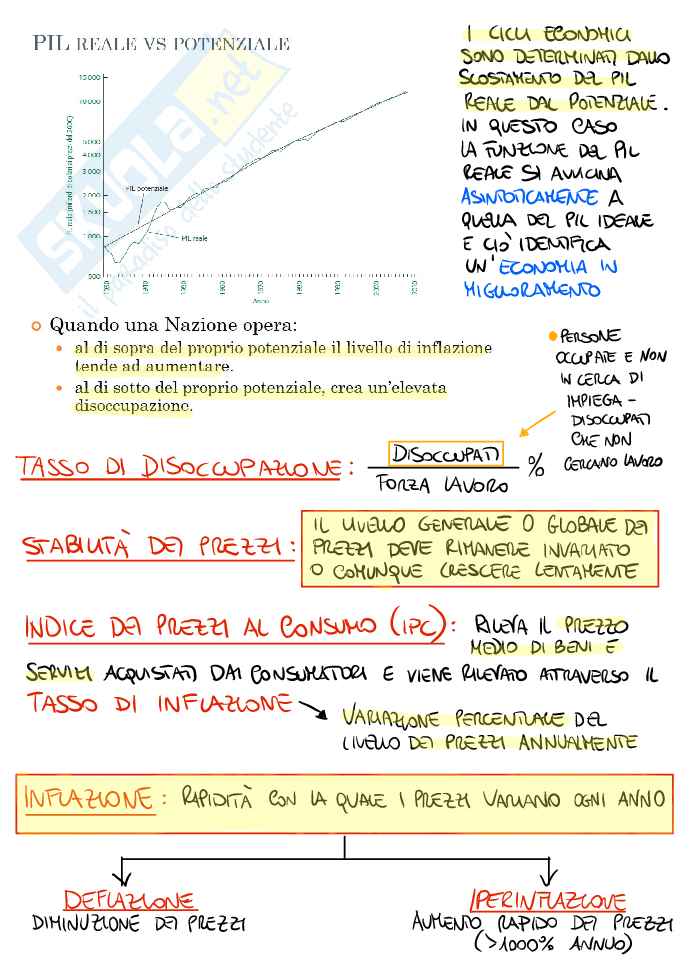 PIL REALE VS POTENZIALE
15 000
10 000
5 000
4 000
3 000
2 000
1 500
1 000
500
PIL potenziale
PIL reale
Anno
SKUOLA.net
il paradiso dello studente
I CICLI ECONOMICI
SONO DETERMINATI DALLO
SCOSTAMENTO DEL PIL
REALE DAL POTENZIALE.
IN QUESTO CASO
LA FUNZIONE DEL PIL
REALE SI AVVICINA
ASINTOTICAMENTE A
QUELLA DEL PIL IDEALE
E CIÒ IDENTIFICA
UN'ECONOMIA IN
MIGLIORAMENTO
Quando una Nazione opera:
al di sopra del proprio potenziale il livello di inflazione
tende ad aumentare.
al di sotto del proprio potenziale, crea un'elevata
disoccupazione.
PERSONE
OCCUPATE E NON
IN CERCA DI
IMPIEGA -
DISOCCUPATI
CHE NON
CERCANO LAVORO
TASSO DI DISOCCUPAZIONE: DISOCCUPATI %
FORZA LAVORO
STABILITÀ DEI PREZZI: IL LIVELLO GENERALE O GLOBALE DEI
PREZZI DEVE RIMANERE INVARIATO
O COMUNQUE CRESCERE LENTAMENTE
INDICE DEI PREZZI AL CONSUMO (IPC): RILEVA IL PREZZO
MEDIO DI BENI E
SERVIZI ACQUISTATI DAI CONSUMATORI E VIENE RILEVATO ATTRAVERSO IL
TASSO DI INFLAZIONE
VARIAZIONE PERCENTUALE DEL
LIVELLO DEI PREZZI ANNUALMENTE
INFLAZIONE: RAPIDITÀ CON LA QUALE I PREZZI VARIANO OGNI ANNO
DEFLAZIONE
DIMINUZIONE DEI PREZZI
IPERINFLAZIONE
AUMENTO RAPIDO DEI PREZZI
(>1000% ANNUO)